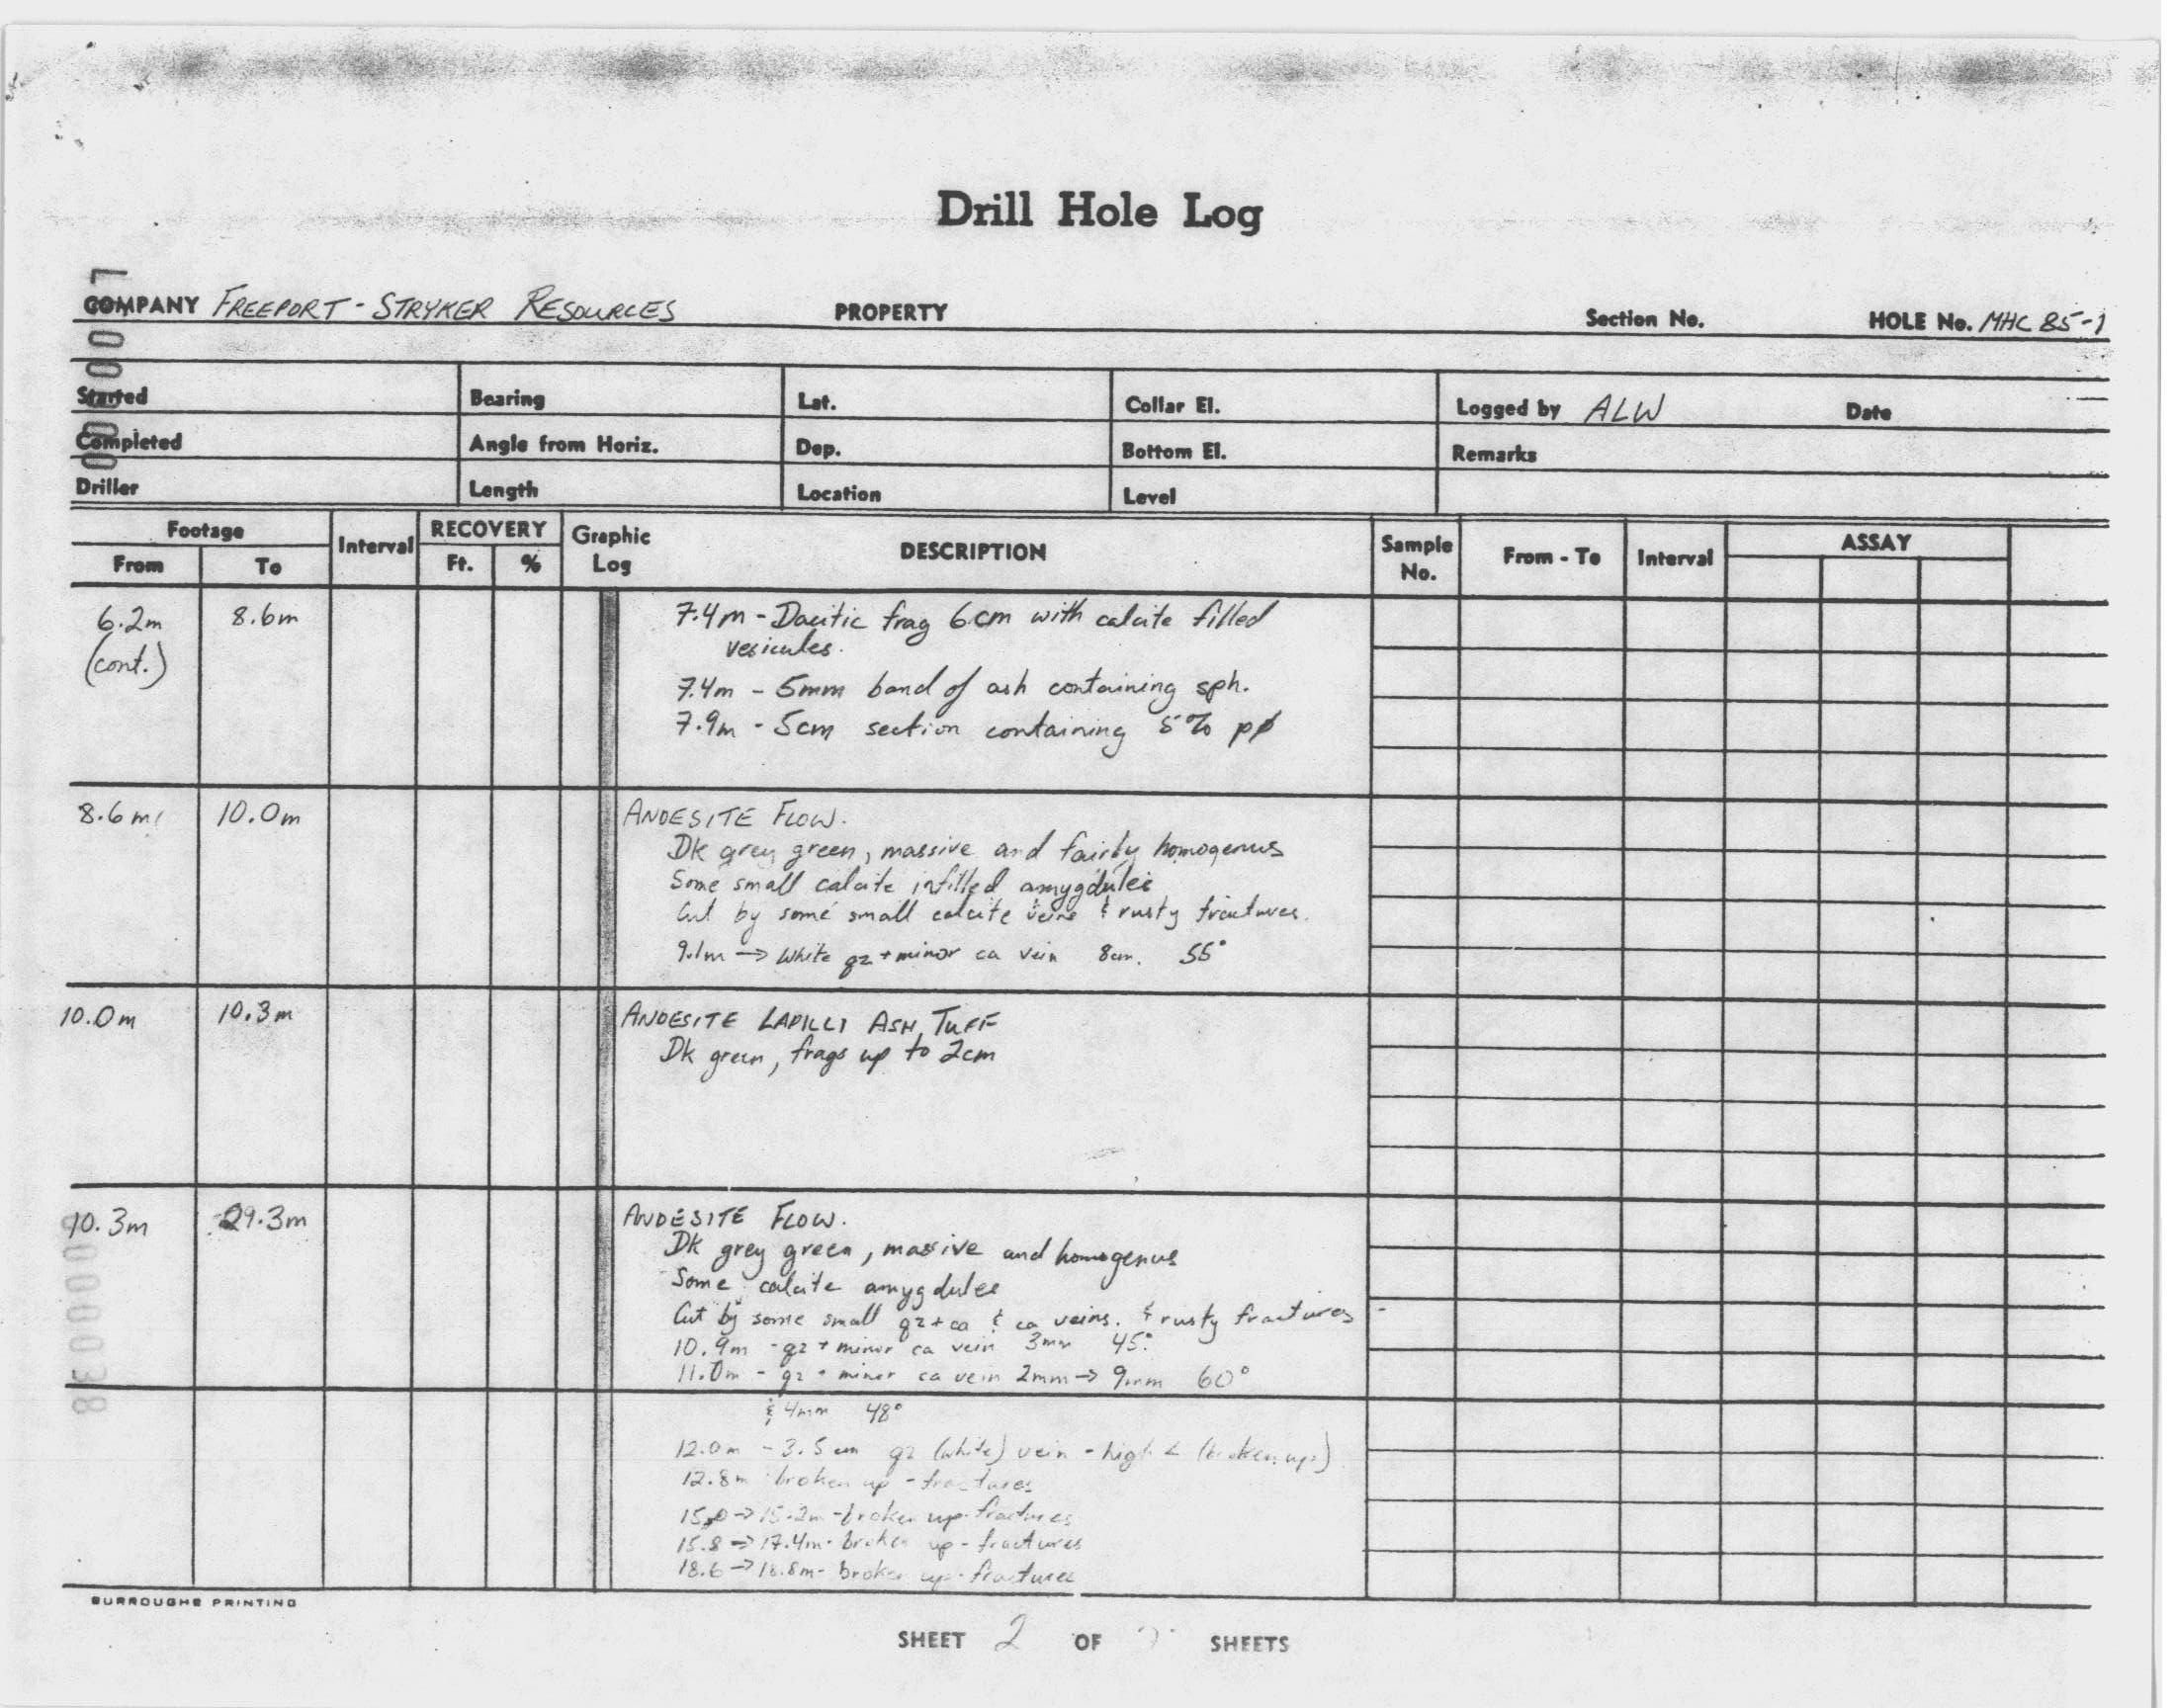 Drill Hole Log
COMPANY FREEPORT - STRYKER RESOURCES PROPERTY Section No. HOLE No. MHC 85-1
Started Bearing Lat. Collar El. Logged by ALW Date
Completed Angle from Horiz. Dep. Bottom El. Remarks
Driller Length Location Level
Footage Interval RECOVERY Graphic Log DESCRIPTION Sample No. From - To Interval ASSAY
From To Ft. %
6.2m 8.6m 7.4m - Dacitic frag 6cm with calcite filled
(cont.) vesicules.
7.4m - 5mm band of ash containing sph.
7.9m - 5cm section containing 5%
8.6m 10.0m ANDESITE FLOW.
Dk grey green, massive and fairly homogenus
Some small calcite infilled amygdules
Cut by some small calcite veins & rusty fractures.
9.1m → White qz + minor ca vein 8cm. 55°
10.0m 10.3m ANDESITE LAPILLI ASH TUFF
Dk green, frags up to 2cm
10.3m 29.3m ANDESITE FLOW.
Dk grey green, massive and homogenus
Some calcite amygdules
Cut by some small qz+ca & ca veins. & rusty fractures
10.9m - qz + minor ca vein 3mm 45°
11.0m - qz + minor ca vein 2mm → 9mm 60°
& 4mm 48°
12.0m - 3.5cm qz (white) vein - high < (broken up)
12.8m broken up - fractures
15.0 → 15.2m - broken up - fractures
15.8 → 17.4m - broken up - fractures
18.6 → 18.8m - broken up - fractures
BURROUGHS PRINTING
SHEET 2 OF SHEETS
0000038